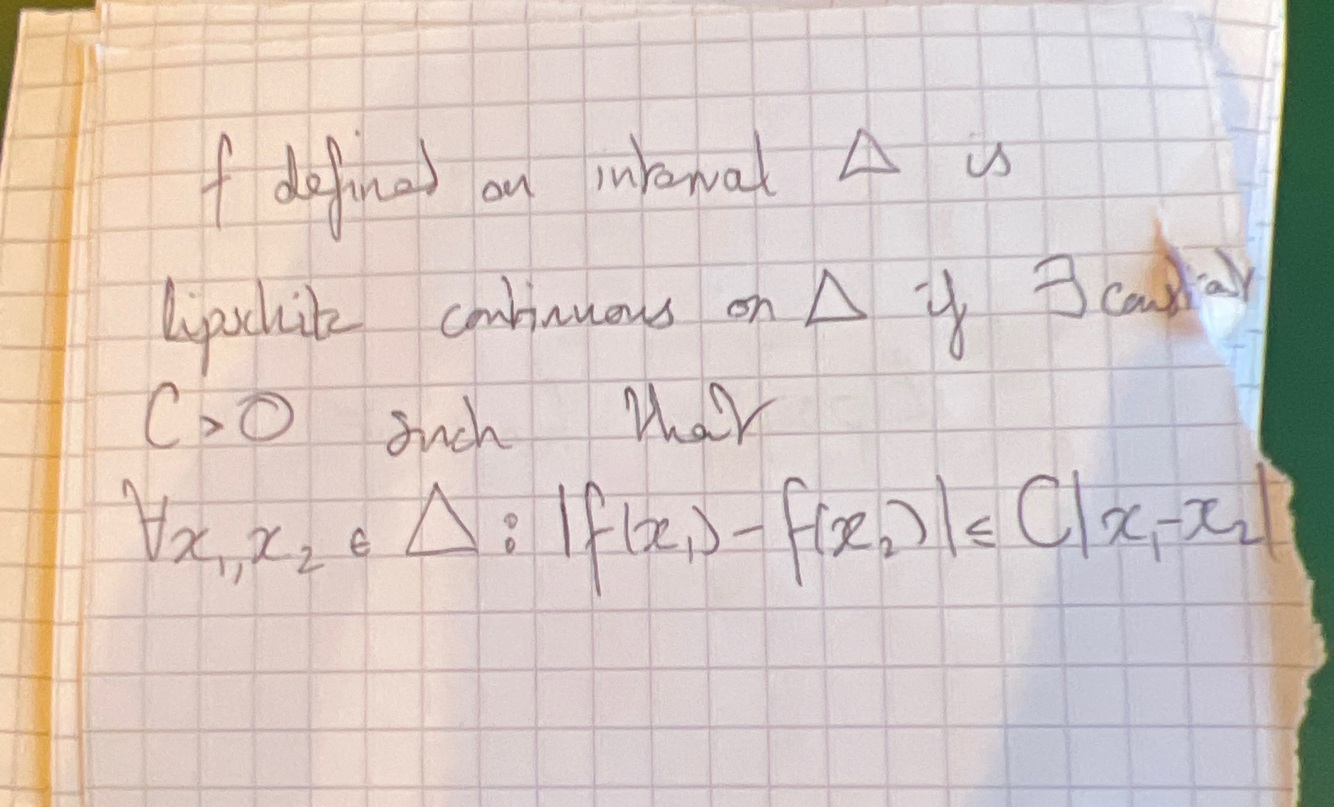 f defined on interval Δ is
lipschitz continuous on Δ if ∃ constant
C > 0 such that
∀x₁, x₂ ∈ Δ : |f(x₁) - f(x₂)| ≤ C|x₁ - x₂|